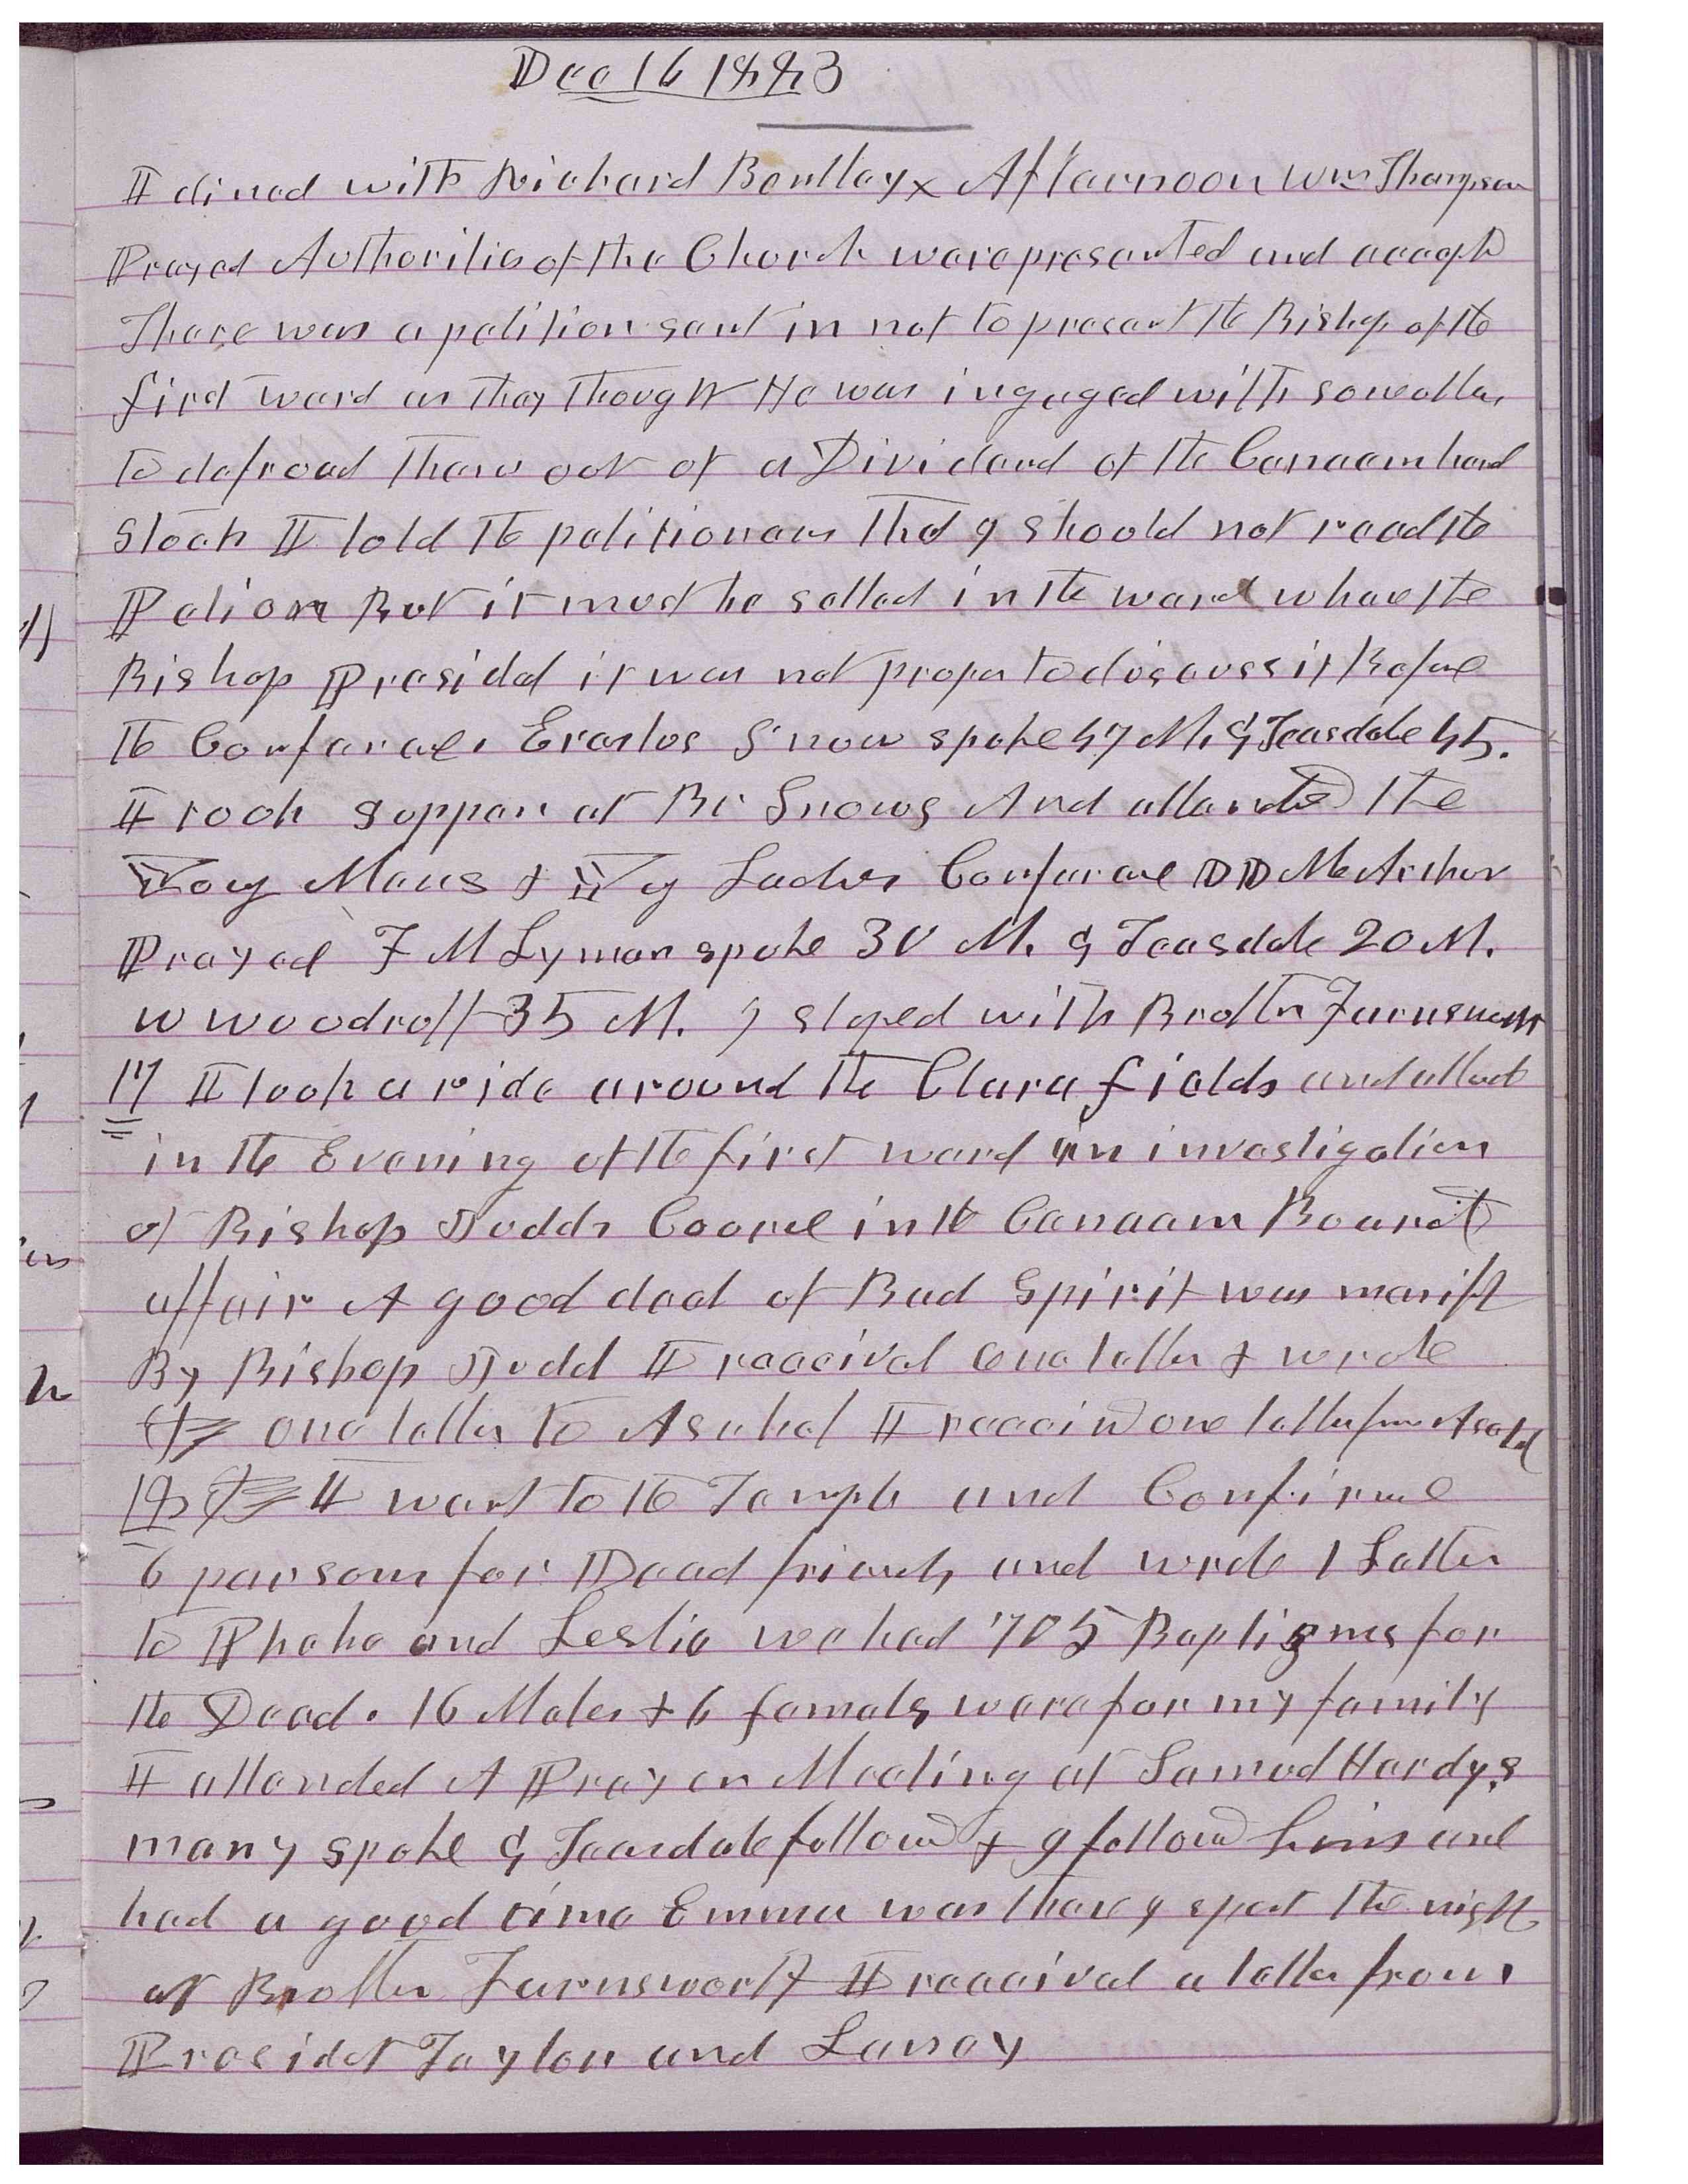 Dec 16 1883
I dined with Richard Bentley x Afternoon Wm Thompson
Prayed Authorities of the Church were presented and accept
There was a petition sent in not to present the Bishop of the
first ward as they thought He was ingaged with some others
to defroud them out of a Dividend of the Canaan herd
Stock I told the petitioners that I should not read the
Petion But it must be settled in the ward whare the
Bishop Presided it was not proper to discuss it Before
the Conference. Erastus Snow spoke 47 M, G Teasdale 45.
I took supper at Br Snows And attended the
Young Mens & Yg Ladies Conference D D McArthur
Prayed F M Lyman spoke 30 M. G Teasdale 20 M.
W Woodruff 35 M. I stayed with Brother Farnsworth
17 I took a ride around the Clara fields and attend
in the Evening of the first ward an investigation
of Bishop Judds Course in the Canaan Board
affair A good deal of Bad Spirit was manifst
By Bishop Judd I received one letter & wrote
one letter to Asahel I receivd one letter from Asahel
18 I went to the Temple and Confirmed
6 persons for Dead friends and wrote 1 Letter
to Phebe and Leslie we had 705 Baptisms for
the Dead. 16 Males & 6 females were for my family
I attended A Prayer Meeting at Samuel Hardys
many spoke G Teasdale followd & I followd him and
had a good time Emma was there I spent the night
at Brother Farnsworth I received a letter from
Presidet Taylor and Lanoy